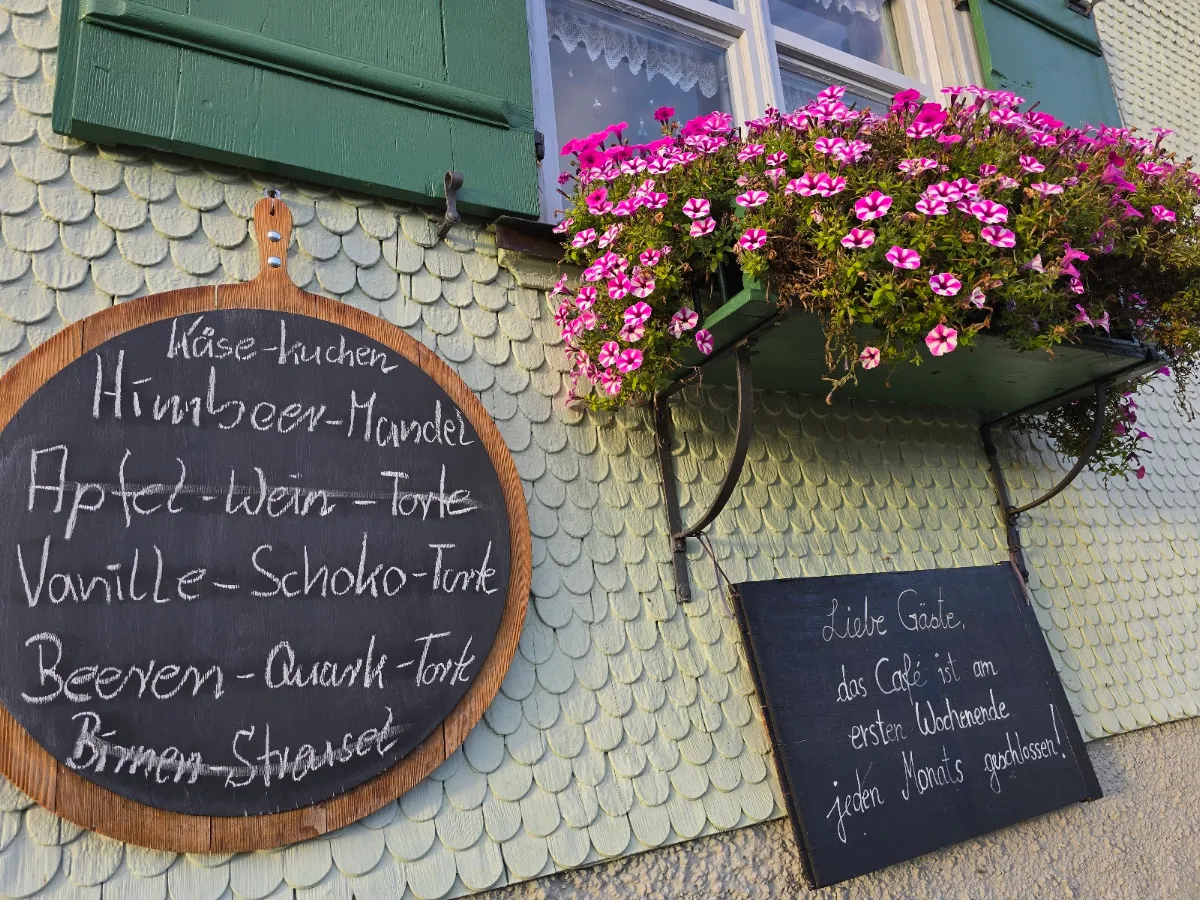 Käse-kuchen
Himbeer-Mandel
Apfel-Wein-Torte
Vanille-Schoko-Torte
Beeren-Quark-Torte
Birnen-Streusel
Liebe Gäste,
das Café ist am
ersten Wochenende
jeden Monats geschlossen!